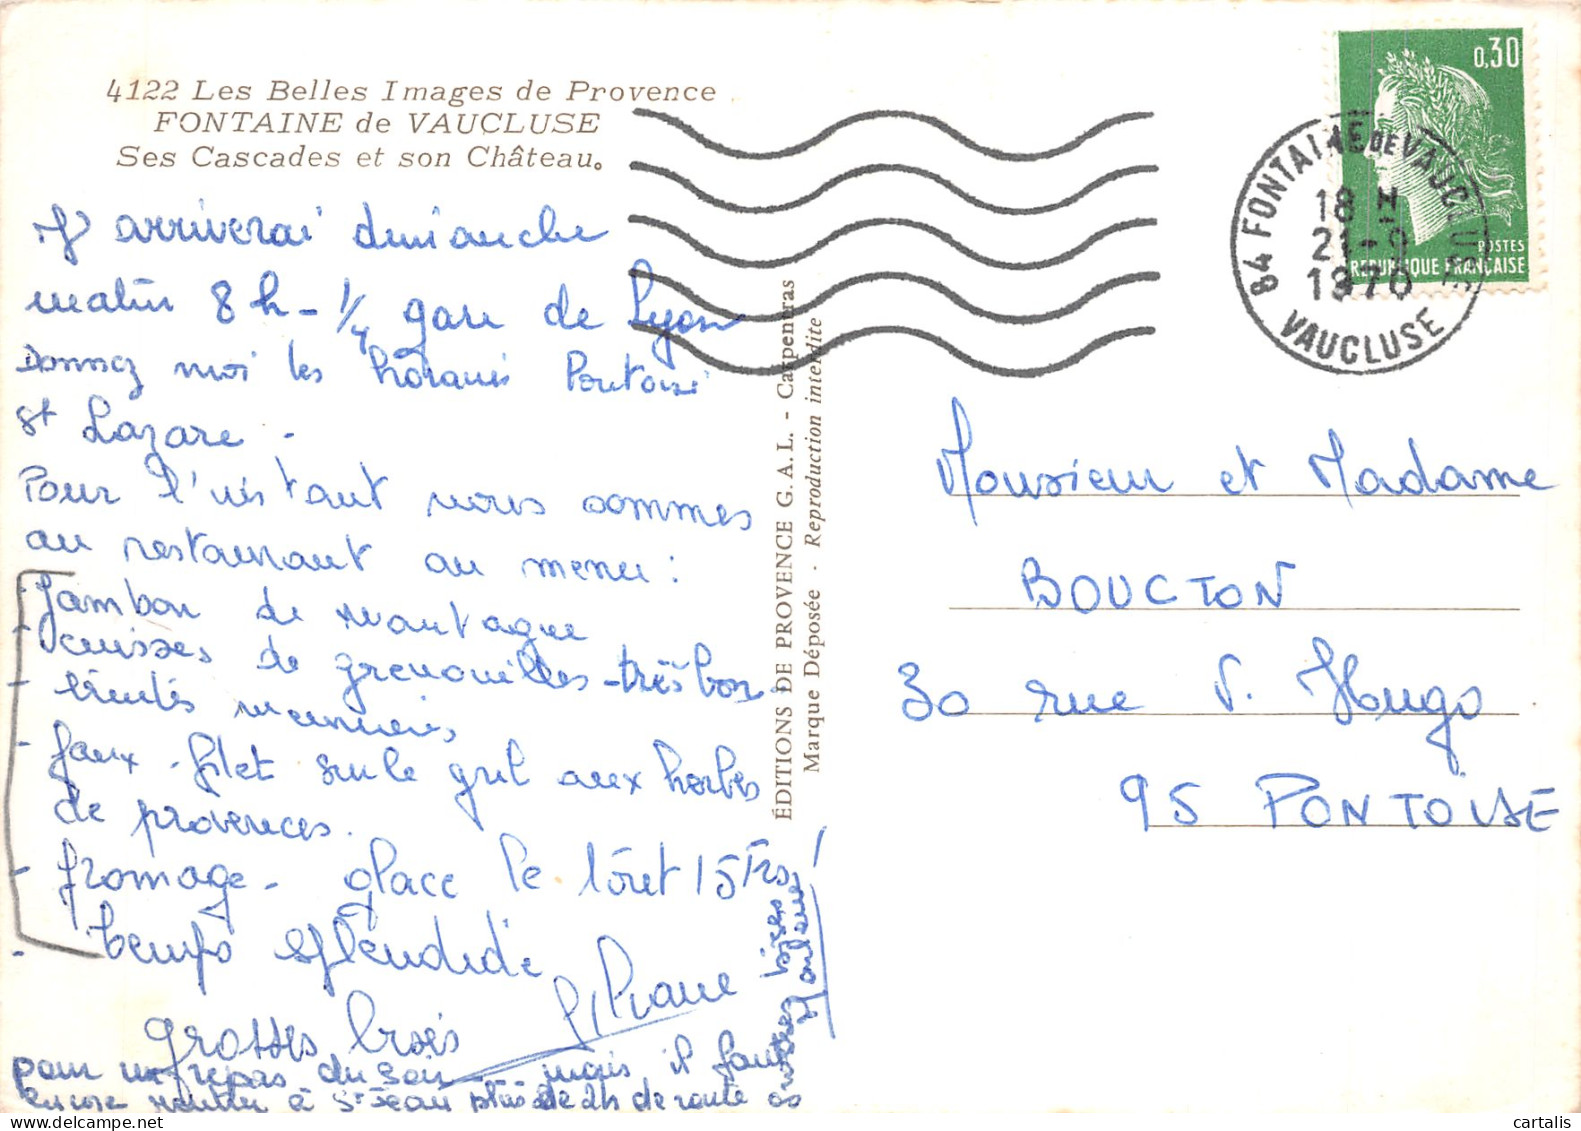 4122 Les Belles Images de Provence
FONTAINE de VAUCLUSE
Ses Cascades et son Château.
J' arriverai dimanche
matin 8h - 1/4 gare de Lyon
Donnez moi les horaires Pontoise
St Lazare -
Pour l'instant nous sommes
au restaurant au menu :
- Jambon de montagne
- cuisses de grenouilles - très bon
- truites meunières
- faux-filet sur le gril aux herbes
de provences.
- fromage - glace le tout 15 Frs !
- temps splendide
grosses bises Liliane
pour un repas du soir mais il faut
encore rentrer à St Jean plus de 2h de route
bises
ÉDITIONS DE PROVENCE G.A.L. - Carpentras
Marque Déposée - Reproduction interdite
0,30
POSTES
REPUBLIQUE FRANÇAISE
84 FONTAINE DE VAUCLUSE
18 H
21-9
1970
VAUCLUSE
Monsieur et Madame
BOUCTON
30 rue V. Hugo
95 PONTOISE
cartalis